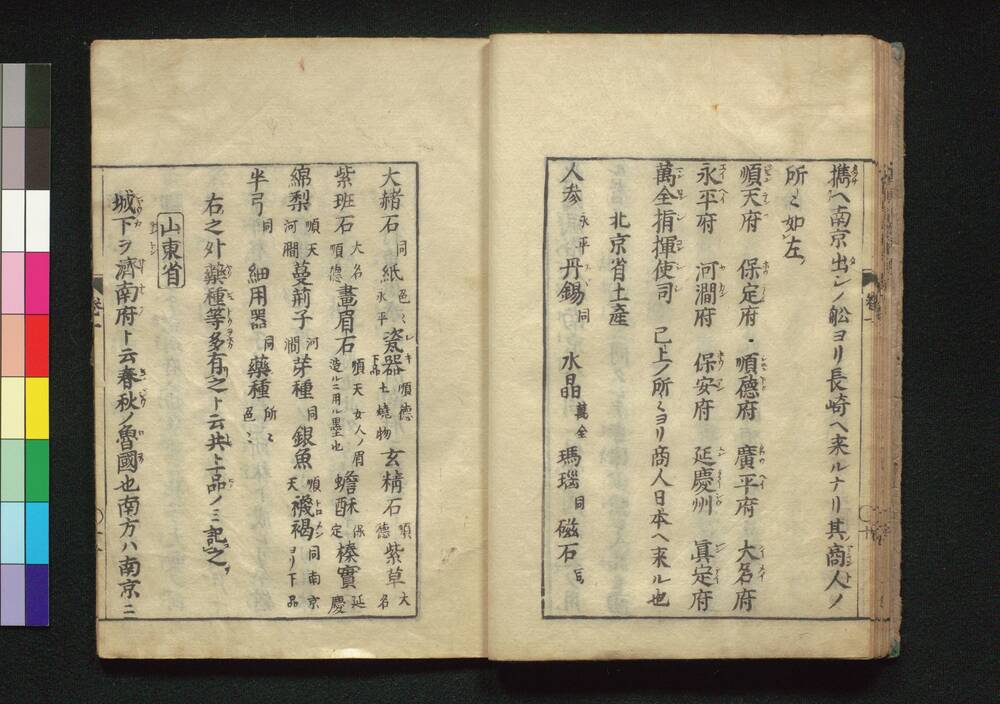 攜ヘ南京出シノ舩ヨリ長崎ヘ来ルナリ其商人ノ
所〻如左
順天府 保定府・順德府 廣平府 大名府
永平府 河澗府 保安府 延慶州 眞定府
萬全指揮使司 已上ノ所〻ヨリ商人日本ヘ来ル也
北京省土産
人参 永平 丹錫 同 水晶 萬全 瑪瑙 同 磁石
大赭石 同 紙 色〻 永平 瓷器 順德 下品 土燒物 玄精石 順德 紫草 大名
紫班石 大名 順德 畫眉石 順天 女人ノ眉 造ルニ用ル墨也 蟾酥 保定 榛實 延慶
綿梨 順天 河澗 蔓荊子 河澗 芽種 同 銀魚 順天 襪褐 同 南京ヨリ下品
半弓 同 細用器 同 藥種 所〻 色〻
右之外藥種等多有之ト云共上品ノミ記之
山東省
城下ヲ濟南府ト云春秋ノ魯國也南方ハ南京ニ
卷一
卷一